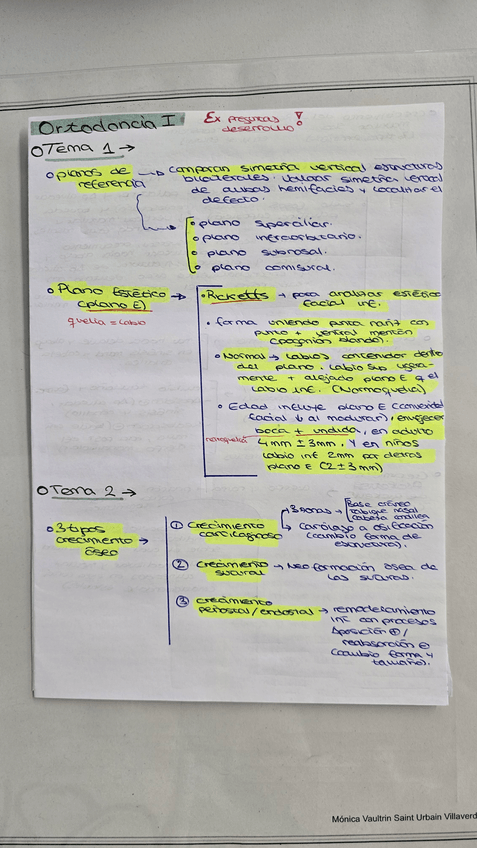 Ortodoncia I
Ex preguntas
desarrollo !
Tema 1 →
planos de → comparan simetría vertical estructuras
referencia bilaterales. Valorar simetría vertical
de ambas hemifacies y localizar el
defecto.
plano superciliar.
plano infraorbitario.
plano subnasal.
plano comisural.
Plano Estético → Ricketts → para analizar estética
(plano E) facial inf.
queilia = labio
forma uniendo punta nariz con
punto + ventral mentón
(pogonion blando).
Normal → Labios contenidos dentro
del plano. Labio sup ligera-
mente + alejado plano E q el
Labio inf. (Normoquelia)
Edad influye plano E (convexidad
facial ↓ al madurar), envejecer
boca + hundida, en adulto
retroquelia 4mm ± 3mm. Y en niños
Labio inf 2mm por detrás
plano E (2 ± 3 mm)
Tema 2 →
3 tipos
crecimiento →
óseo
① crecimiento
cartilaginoso
3 zonas → Base cráneo
tabique nasal
cabeza cóndilo
↳ Cartílago a osificación
(cambio forma de
estructura).
② crecimiento → Neoformación ósea de
sutural las suturas.
③ crecimiento
periostal/endostal → remodelamiento
inf con procesos
Aposición ⊕ /
reabsorción ⊖
(cambio forma y
tamaño).
Mónica Vaultrin Saint Urbain Villaverd